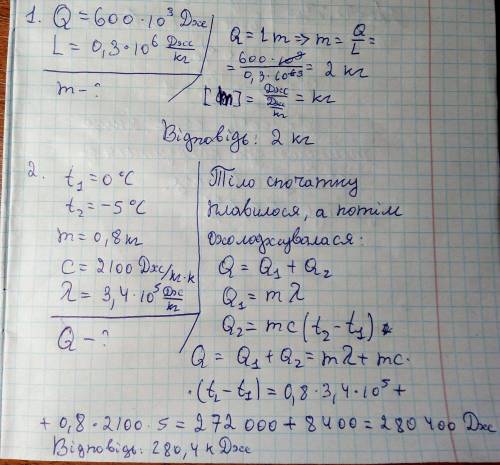 1. Q = 600 · 10³ Дж
L = 0,3 · 10⁶ Дж/кг
m - ?
Q = Lm ⇒ m = Q/L =
= 600 · 10³ / 0,3 · 10⁶³ = 2 кг
[m] = Дж / Дж/кг = кг
Відповідь: 2 кг
2. t₁ = 0 °C
t₂ = -5 °C
m = 0,8 кг
c = 2100 Дж/кг·к
λ = 3,4 · 10⁵ Дж/кг
Q - ?
Тіло спочатку
плавилося, а потім
охолоджувалася:
Q = Q₁ + Q₂
Q₁ = mλ
Q₂ = mc(t₂ - t₁)
Q = Q₁ + Q₂ = mλ + mc ·
· (t₂ - t₁) = 0,8 · 3,4 · 10⁵ +
+ 0,8 · 2100 · 5 = 272 000 + 8400 = 280 400 Дж
Відповідь: 280,4 кДж